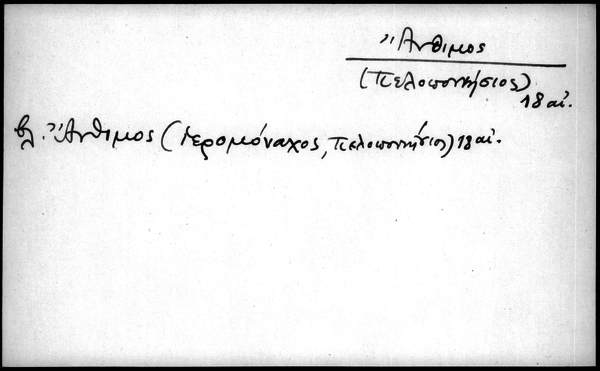 Ἄνθιμος
(Πελοποννήσιος)
18 αἰ.
βλ. Ἄνθιμος (Ἱερομόναχος, Πελοποννήσιος) 18 αἰ.